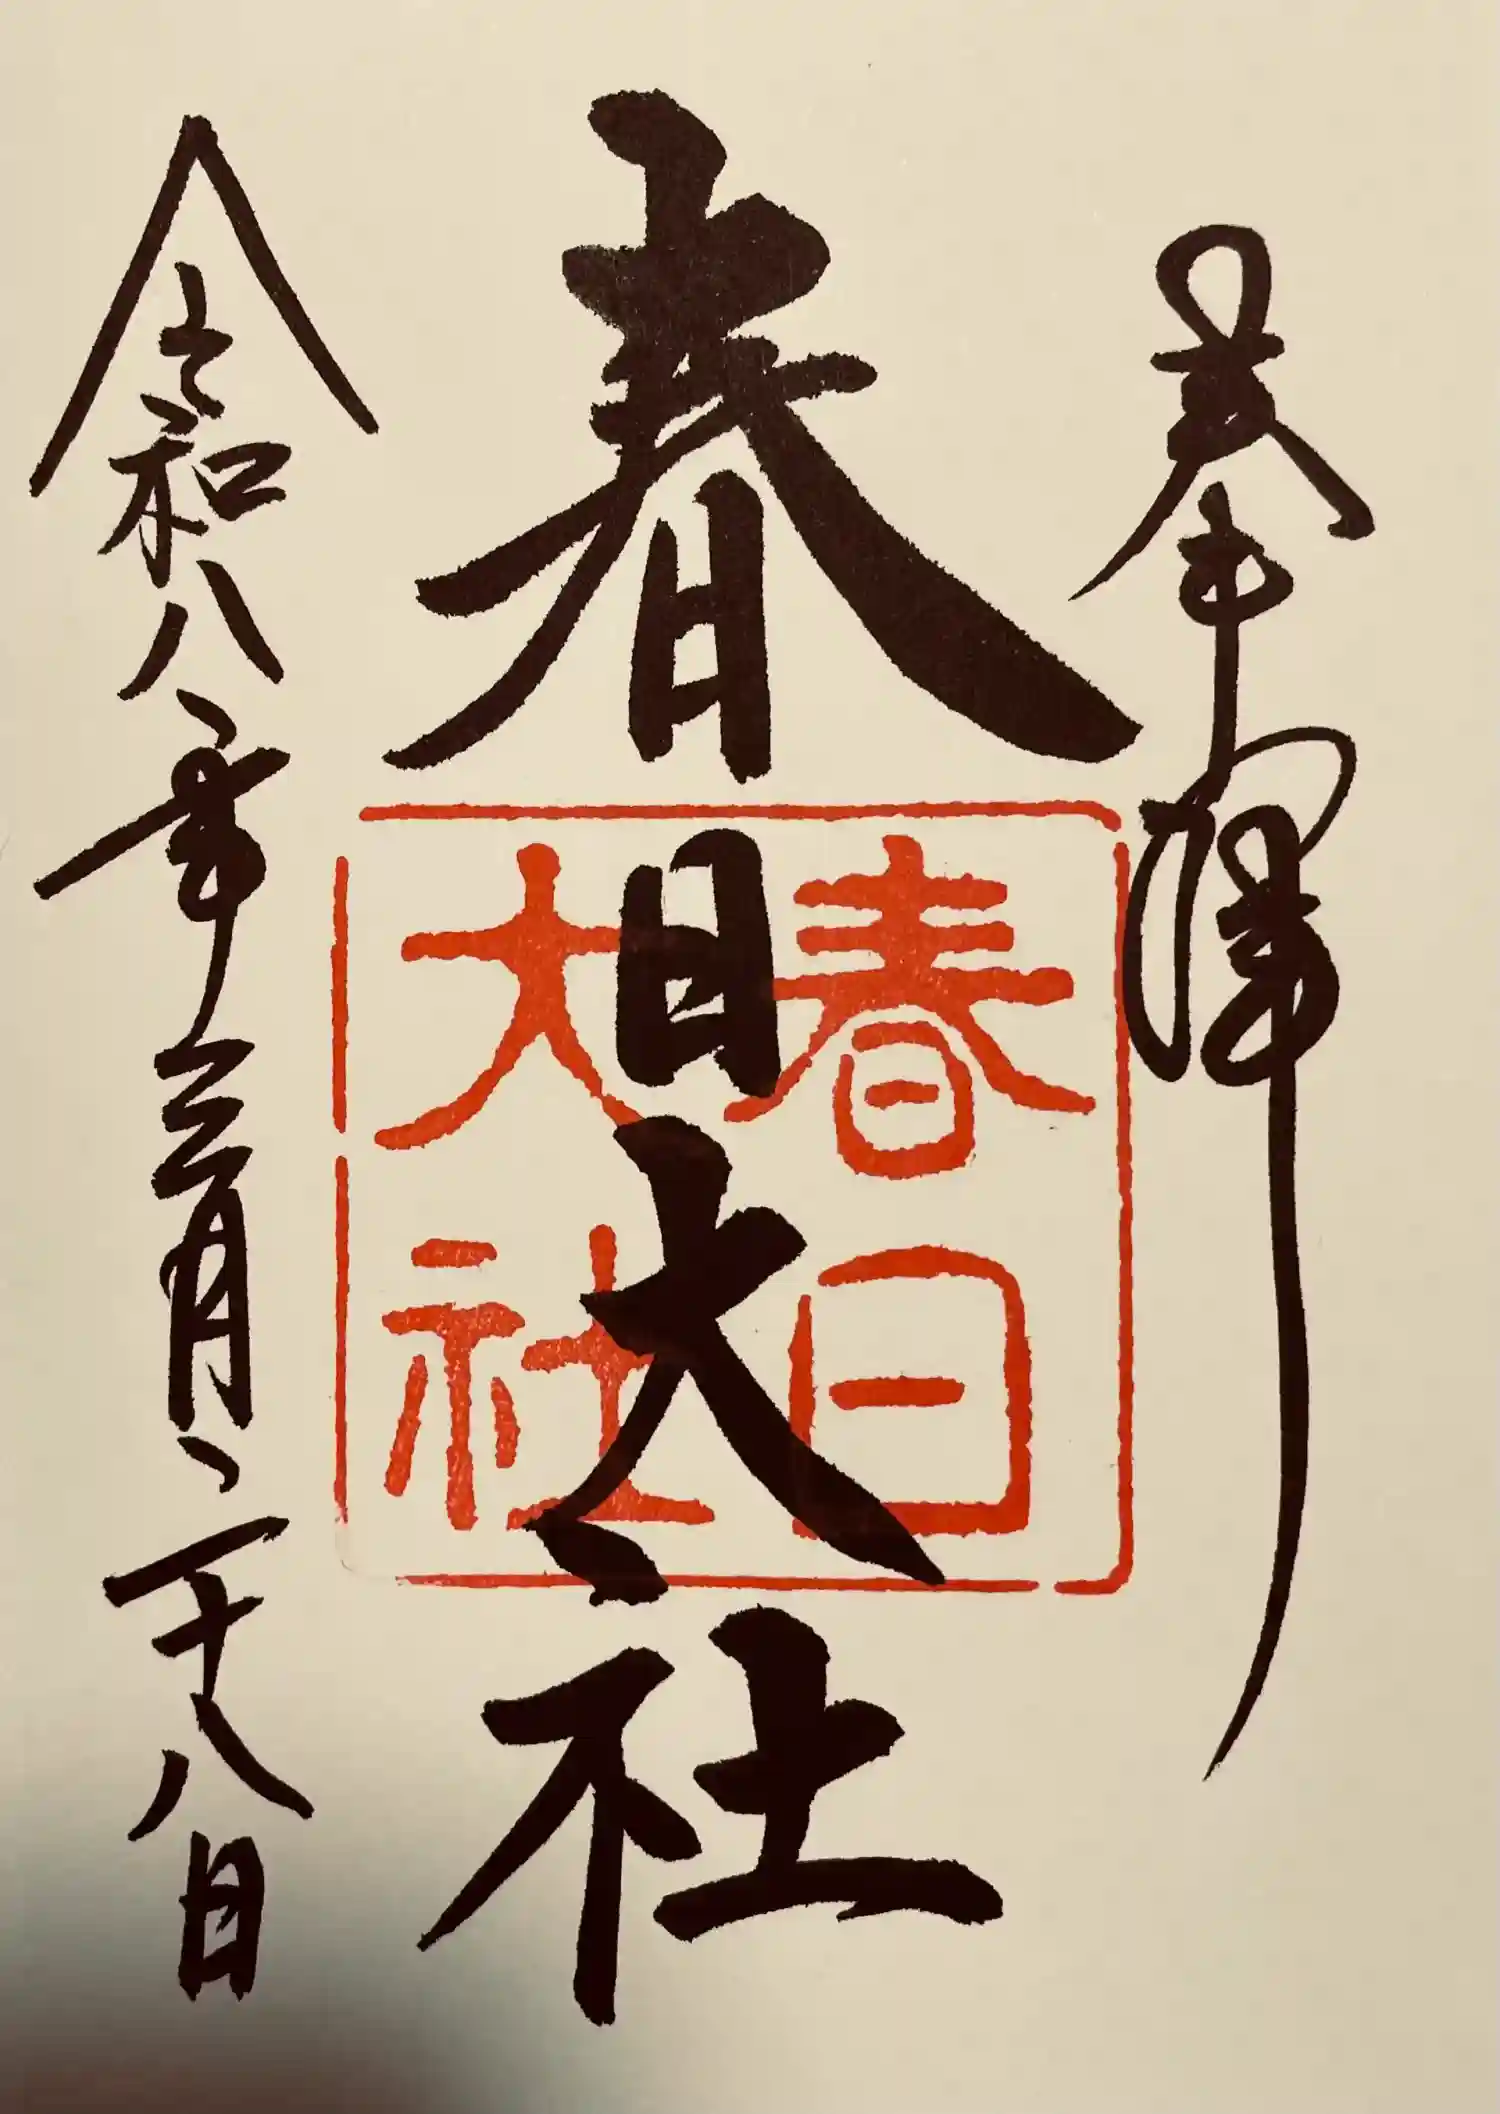 奉拝
春日大社
春日大社
令和八年三月二十八日